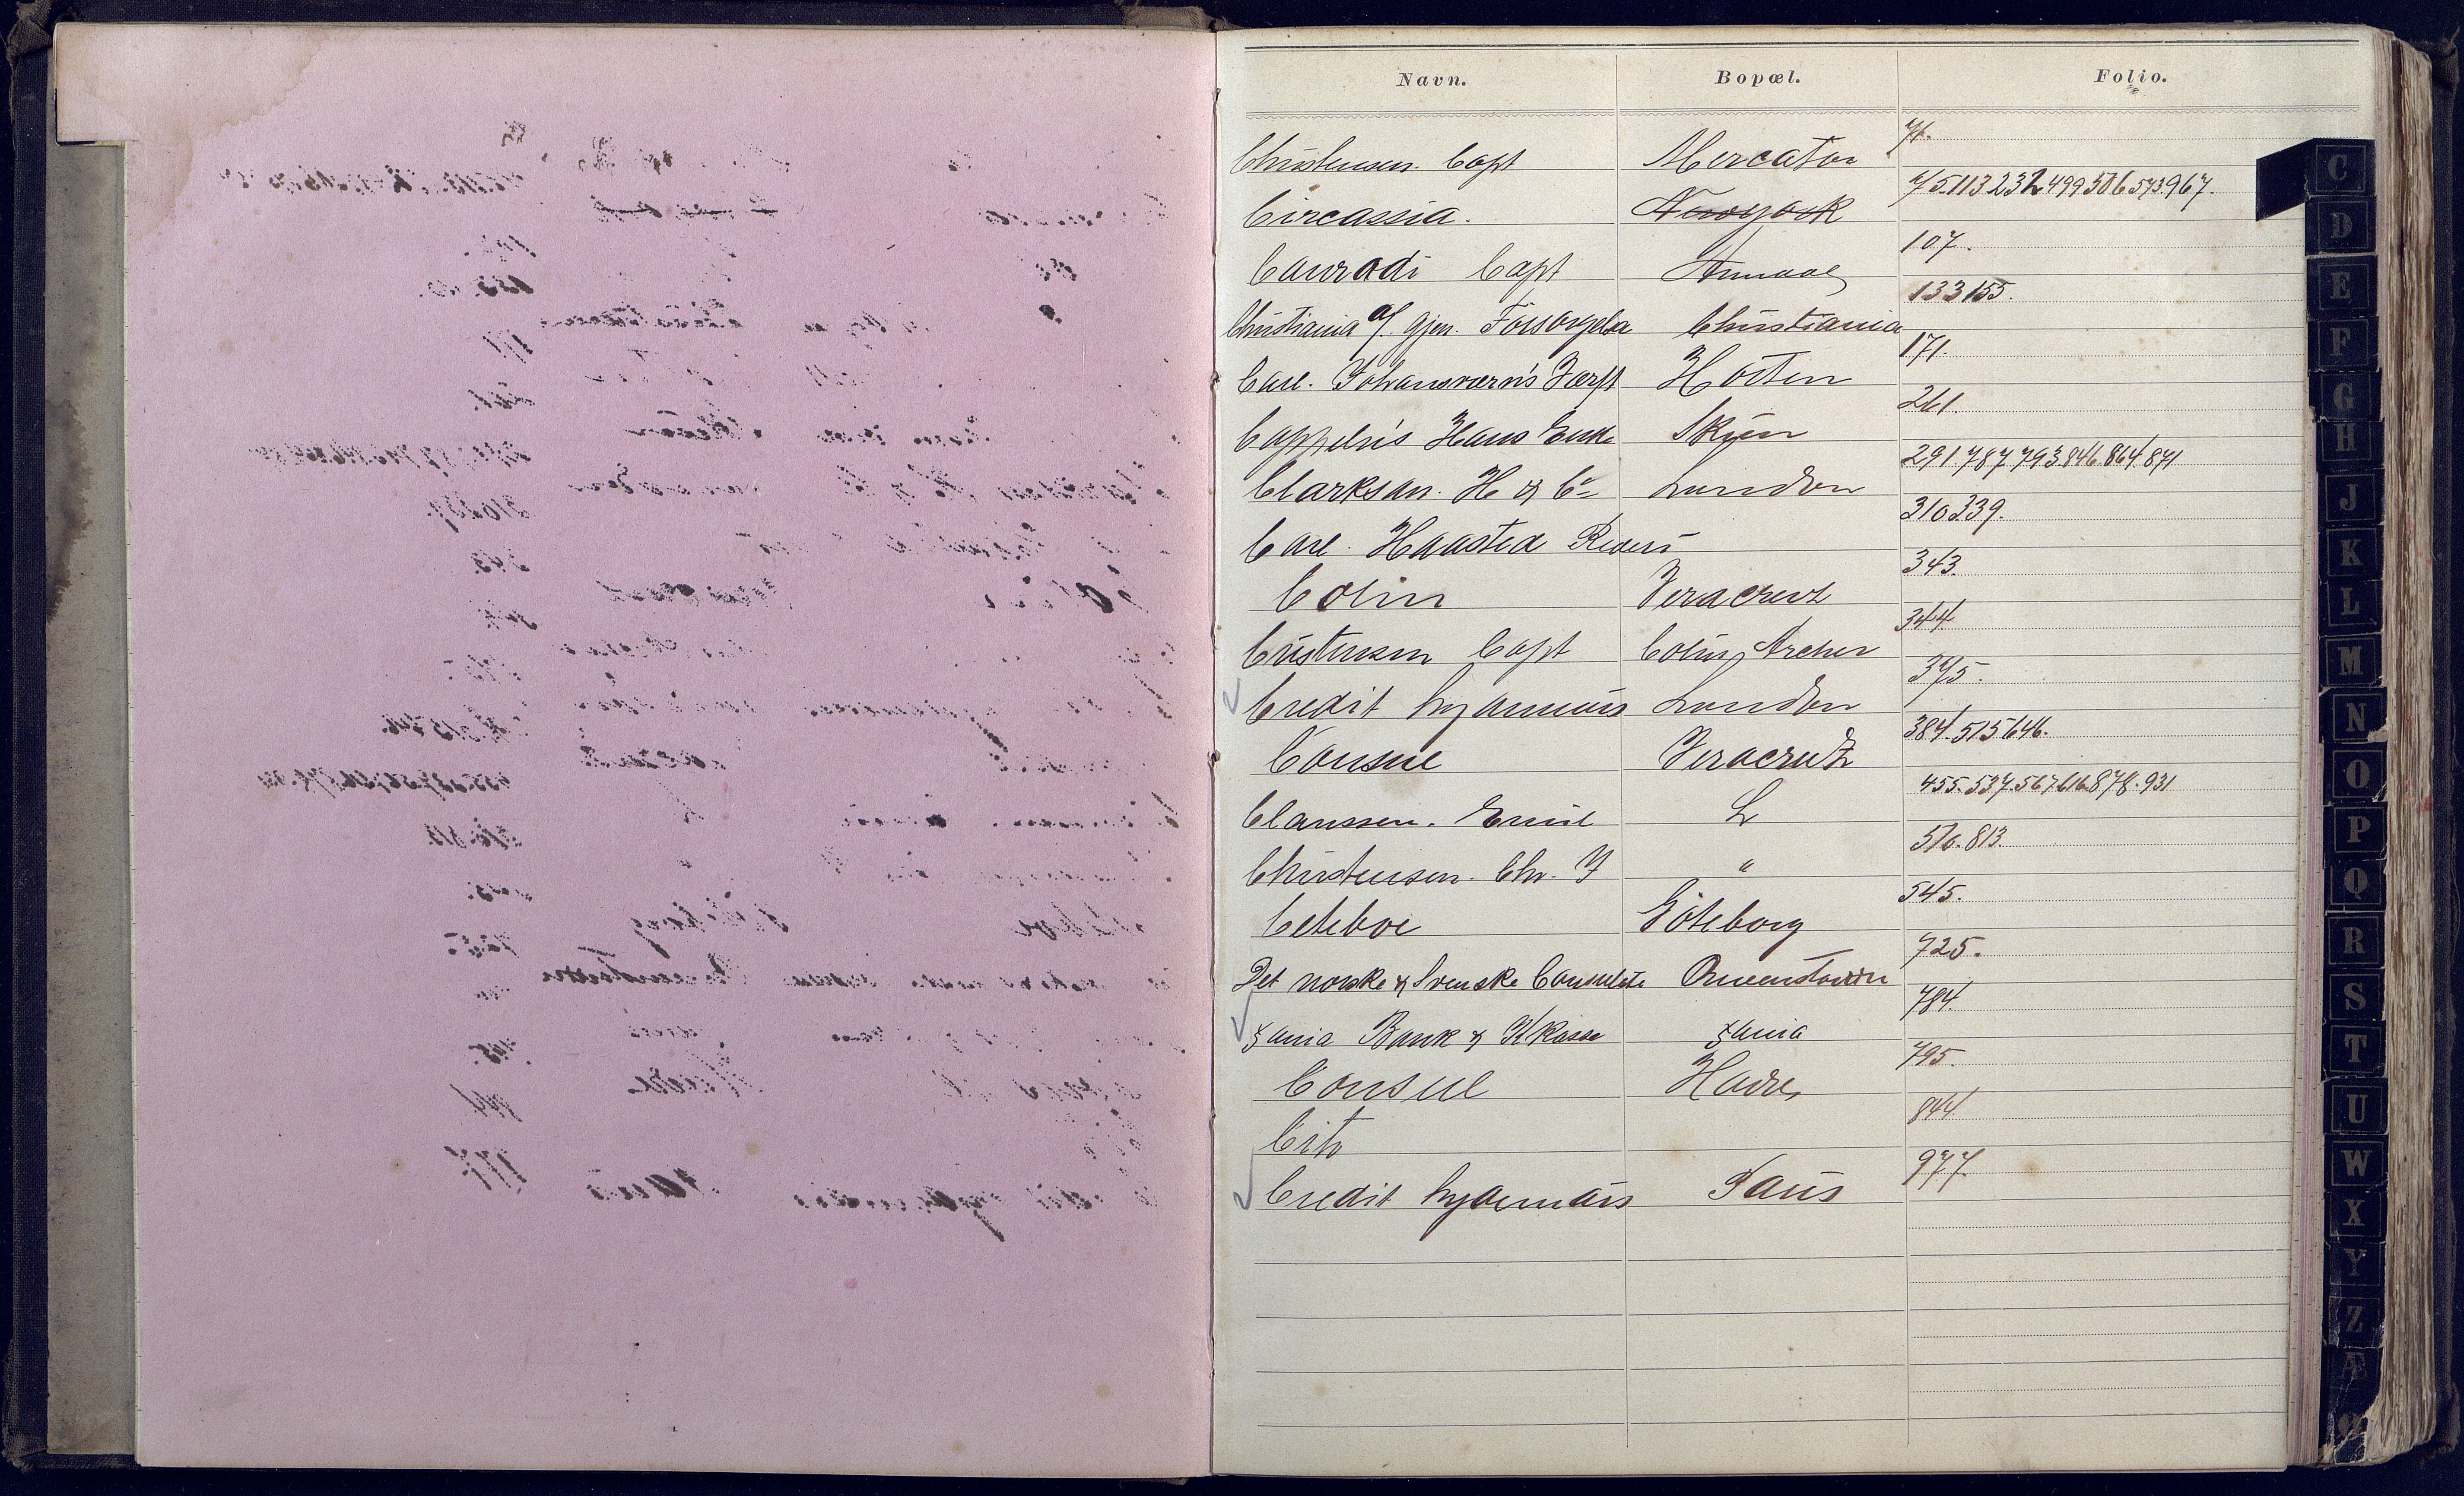 Navn. Bopæl. Folio.
Christensen. Capt Mercator 71.
Circassia. Newyork 75.113 232 499 506 573.967.
Conradi Capt 107.
Christiania Christiania 133 155.
Carl. Johansværn's Værft Horten 171.
Cappeln's Hans Enke Skien 261.
Clarkson. H & Co London 291.787 793.846.864.871
Carl Haasted 310 339.
Colin Veracruz 343.
Cristensen Capt Colin Archer 344
Credit lyonnais London 375.
Consul Veracrutz 384.515 646.
Claussen. Emil L 455.537.567 616.878.931
Christensen. Chr. J " 510.813.
Göteborg 545.
Det norske & Svenske Consulate Queenstown 725.
Xania Bank & Kkasse Xania 784.
Consul Havre 795.
Cito 844
Credit lyonnais Paris 977.
C
D
E
F
G
H
J
K
L
M
N
O
P
Q
R
S
T
U
W
X
Y
Z
Æ
Ø